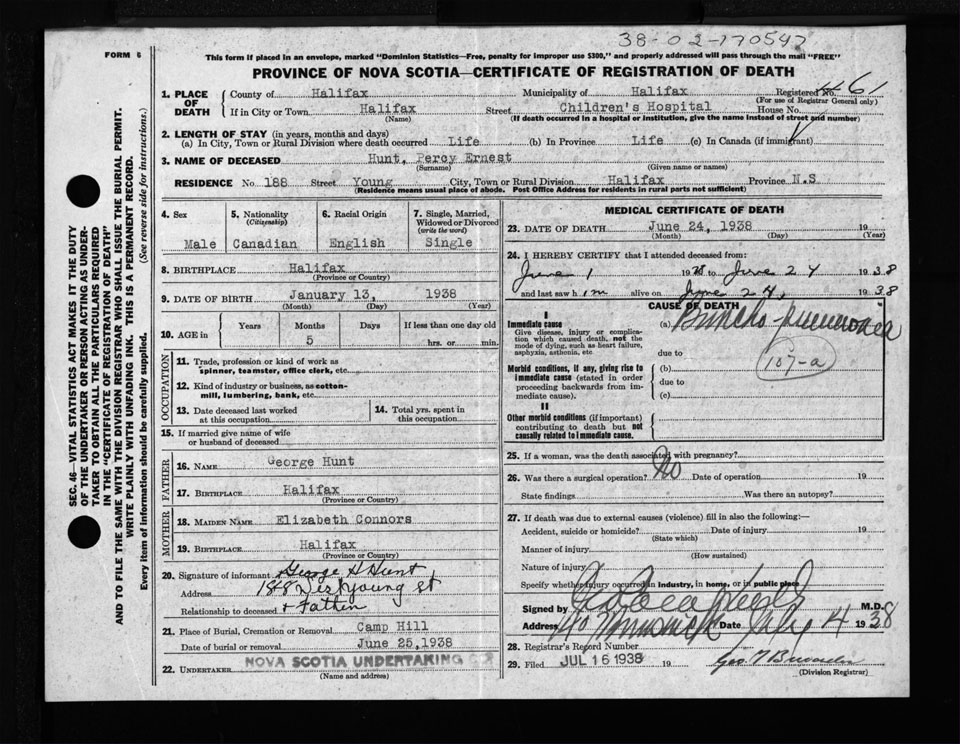 38-02-170597
FORM 6
This form if placed in an envelope, marked "Dominion Statistics—Free, penalty for improper use $300," and properly addressed will pass through the mail "FREE"
PROVINCE OF NOVA SCOTIA—CERTIFICATE OF REGISTRATION OF DEATH
SEC. 46—VITAL STATISTICS ACT MAKES IT THE DUTY
OF THE UNDERTAKER OR PERSON ACTING AS UNDER-
TAKER TO OBTAIN ALL THE PARTICULARS REQUIRED
IN THE "CERTIFICATE OF REGISTRATION OF DEATH"
AND TO FILE THE SAME WITH THE DIVISION REGISTRAR WHO SHALL ISSUE THE BURIAL PERMIT.
WRITE PLAINLY WITH UNFADING INK. THIS IS A PERMANENT RECORD.
Every item of information should be carefully supplied. (See reverse side for instructions.)
1. PLACE OF DEATH County of Halifax Municipality of Halifax Registered No. 461
(For use of Registrar General only)
If in City or Town Halifax Street Children's Hospital House No.
(Name) (If death occurred in a hospital or institution, give the name instead of street and number)
2. LENGTH OF STAY (in years, months and days)
(a) In City, Town or Rural Division where death occurred Life (b) In Province Life (c) In Canada (if immigrant)
3. NAME OF DECEASED Hunt, Percy Ernest
(Surname) (Given name or names)
RESIDENCE No 188 Street Young City, Town or Rural Division Halifax Province N.S
(Residence means usual place of abode. Post Office Address for residents in rural parts not sufficient)
4. Sex 5. Nationality (Citizenship) 6. Racial Origin 7. Single, Married, Widowed or Divorced (write the word)
Male Canadian English Single
8. BIRTHPLACE Halifax
(Province or Country)
9. DATE OF BIRTH January 13, 1938
(Month) (Day) (Year)
10. AGE in Years Months Days If less than one day old
5 hrs. or min.
OCCUPATION
11. Trade, profession or kind of work as
spinner, teamster, office clerk, etc.
12. Kind of industry or business, as cotton-
mill, lumbering, bank, etc.
13. Date deceased last worked
at this occupation
14. Total yrs. spent in
this occupation
15. If married give name of wife
or husband of deceased
FATHER
16. NAME George Hunt
17. BIRTHPLACE Halifax
(Province or Country)
MOTHER
18. MAIDEN NAME Elizabeth Connors
19. BIRTHPLACE Halifax
(Province or Country)
20. Signature of informant George H Hunt
Address 188 Young St
Relationship to deceased Father
21. Place of Burial, Cremation or Removal Camp Hill
Date of burial or removal June 25, 1938
22. UNDERTAKER NOVA SCOTIA UNDERTAKING
(Name and address)
MEDICAL CERTIFICATE OF DEATH
23. DATE OF DEATH June 24, 1938 19
(Month) (Day) (Year)
24. I HEREBY CERTIFY that I attended deceased from:
June 1 1938 to June 24 1938
and last saw him alive on June 24, 1938
CAUSE OF DEATH
I
Immediate cause (a) Broncho-pneumonia
Give disease, injury or complica-
tion which caused death, not the
mode of dying, such as heart failure,
asphyxia, asthenia, etc
due to
107-a
Morbid conditions, if any, giving rise to
immediate cause (stated in order
proceeding backwards from im-
mediate cause).
(b)
due to
(c)
II
Other morbid conditions (if important)
contributing to death but not
causally related to immediate cause.
25. If a woman, was the death associated with pregnancy?
26. Was there a surgical operation? No Date of operation 19
State findings Was there an autopsy?
27. If death was due to external causes (violence) fill in also the following:—
Accident, suicide or homicide? Date of injury 19
(State which)
Manner of injury
(How sustained)
Nature of injury
Specify whether injury occurred in industry, in home, or in public place
Signed by M.D.
Address Date July 4 1938
28. Registrar's Record Number
29. Filed JUL 16 1938 19
(Division Registrar)